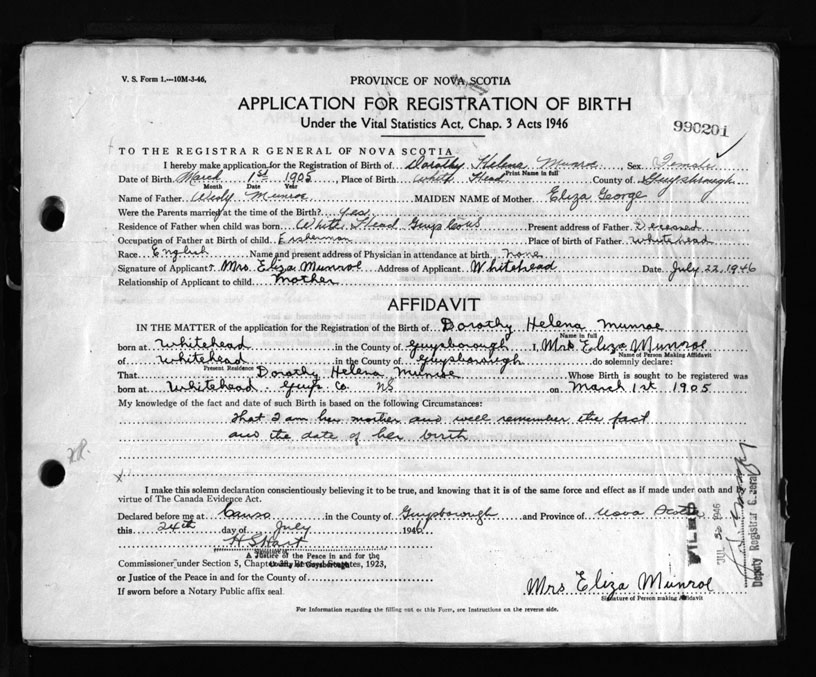 V. S. Form 1.—10M-3-46,
PROVINCE OF NOVA SCOTIA
APPLICATION FOR REGISTRATION OF BIRTH
Under the Vital Statistics Act, Chap. 3 Acts 1946
990201
TO THE REGISTRAR GENERAL OF NOVA SCOTIA
I hereby make application for the Registration of Birth of Dorothy Helena Munroe Sex Female
Print Name in full
Date of Birth March 1st 1905, Place of Birth White Head County of Guysborough
Month Date Year
Name of Father Munroe MAIDEN NAME of Mother Eliza George
Were the Parents married at the time of the Birth? yes
Residence of Father when child was born White Head Guys Present address of Father Deceased
Occupation of Father at Birth of child Fisherman Place of Birth of Father Whitehead
Race English Name and present address of Physician in attendance at birth none
Signature of Applicant? Mrs. Eliza Munroe Address of Applicant Whitehead Date July 22, 1946
Relationship of Applicant to child Mother
AFFIDAVIT
IN THE MATTER of the application for the Registration of the Birth of Dorothy Helena Munroe
Name in full
born at Whitehead in the County of Guysborough I, Mrs Eliza Munroe
Name of Person Making Affidavit
of Whitehead in the County of Guysborough do solemnly declare:
Present Residence
That Dorothy Helena Munroe Whose Birth is sought to be registered was
born at Whitehead Guys Co NS on March 1st 1905
My knowledge of the fact and date of such Birth is based on the following Circumstances:
That I am her mother and well remember the fact
and the date of her birth
I make this solemn declaration conscientiously believing it to be true, and knowing that it is of the same force and effect as if made under oath and
virtue of The Canada Evidence Act.
Declared before me at Canso in the County of Guysborough and Province of Nova Scotia
this 24th day of July 1946
H S Hart
A Justice of the Peace in and for the
Commissioner under Section 5, Chapter Statutes, 1923,
or Justice of the Peace in and for the County of
If sworn before a Notary Public affix seal
Mrs Eliza Munroe
Signature of Person making Affidavit
For Information regarding the filling out of this Form, see Instructions on the reverse side.
FILED
JUL 1946
Deputy Registrar General